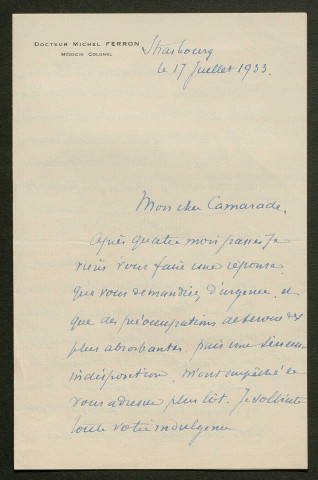 DOCTEUR MICHEL FERRON
MÉDECIN COLONEL
Strasbourg
le 17 Juillet 1933.
Mon cher Camarade,
Après quatre mois passés je
viens vous faire une réponse
que vous demandiez d'urgence et
que des préoccupations de service des
plus absorbantes, puis une sérieuse
indisposition m'ont empêché de
vous adresser plus tôt. Je sollicite
toute votre indulgence